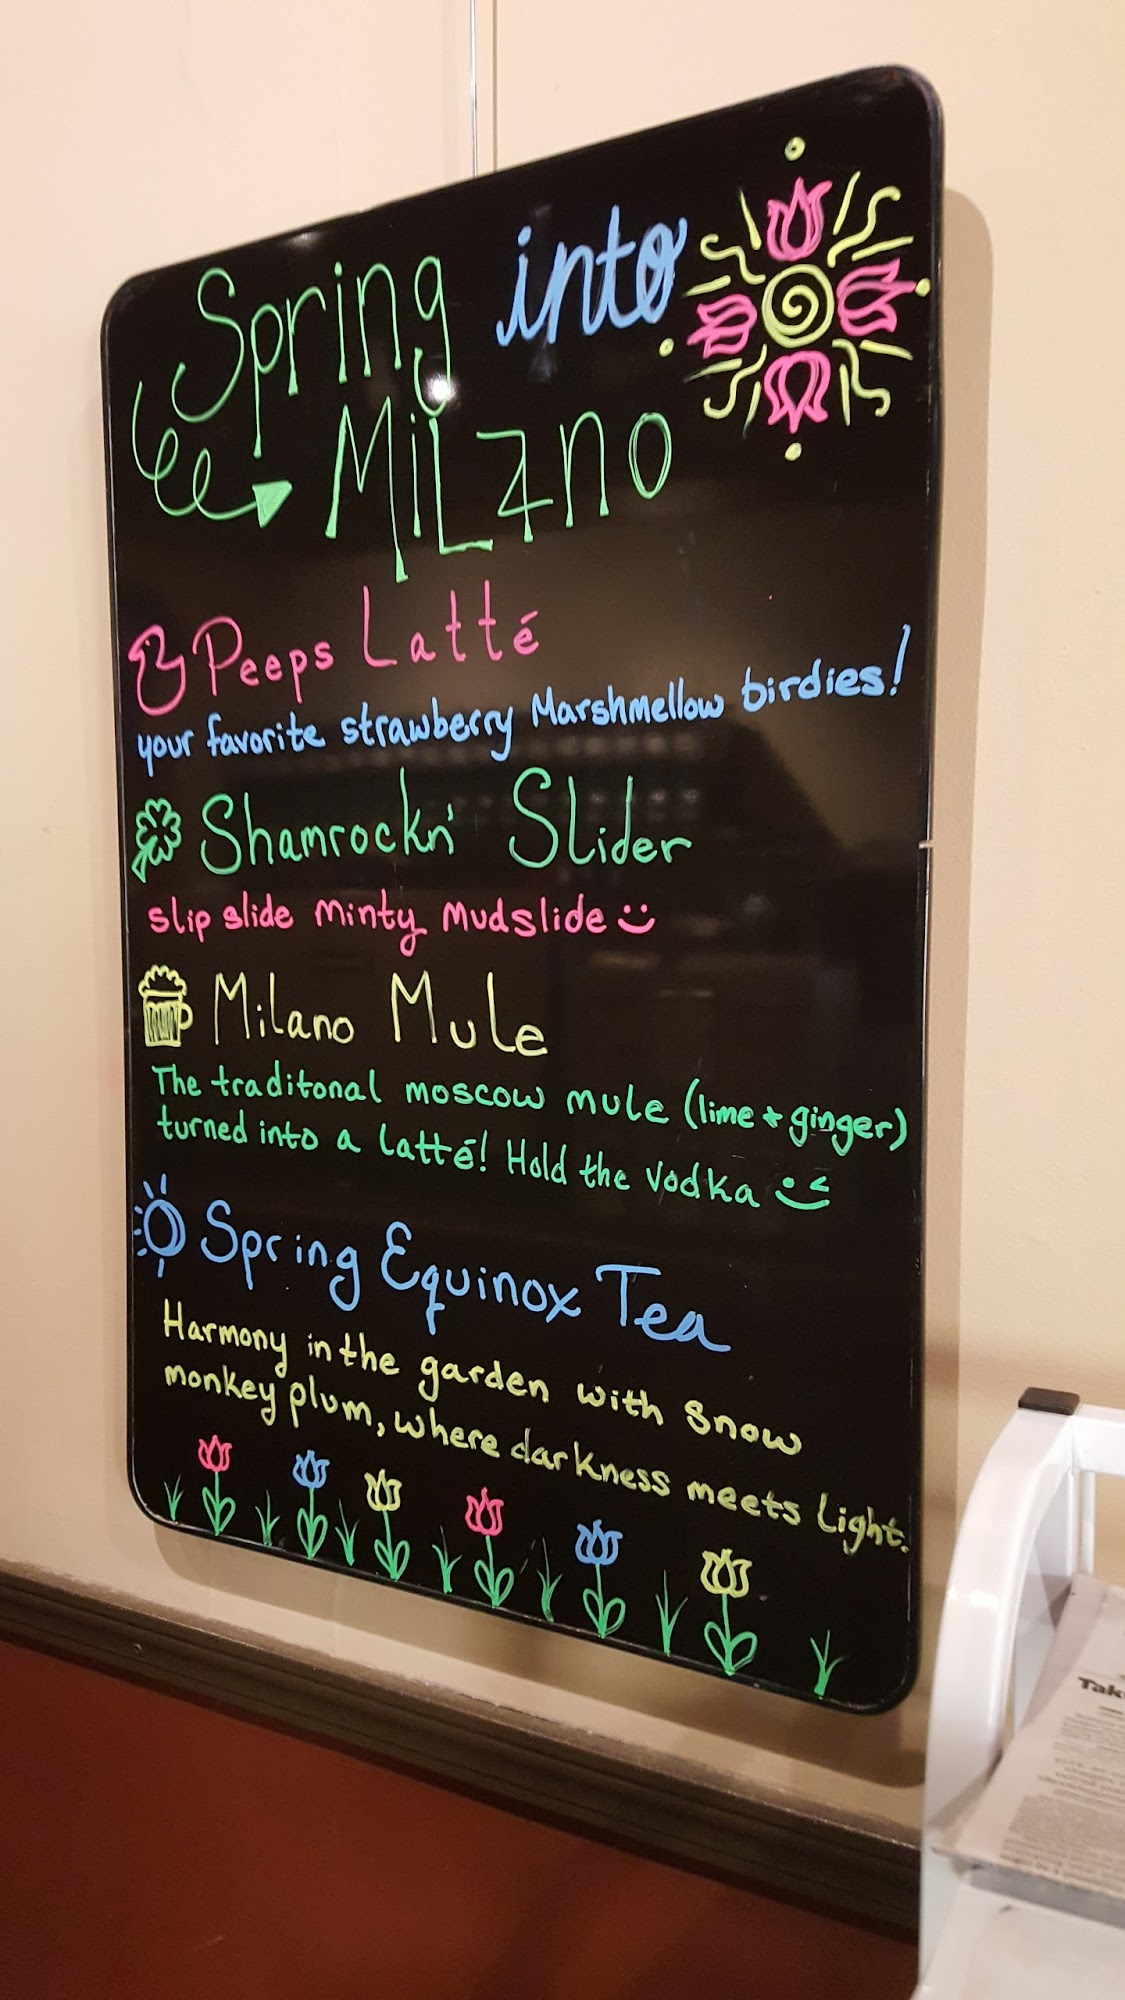 Spring into
MiLano
Peeps Latté
your favorite strawberry Marshmellow birdies!
Shamrockn' Slider
slip slide minty mudslide
Milano Mule
The traditonal moscow mule (lime + ginger)
turned into a latté! Hold the vodka
Spring Equinox Tea
Harmony in the garden with snow
monkey plum, where darkness meets light.
Tak